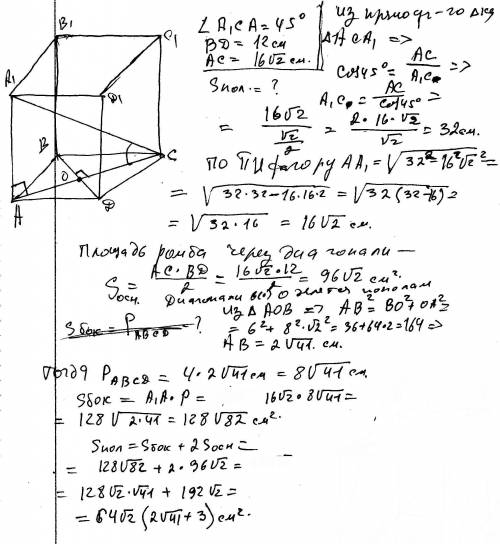 B₁
C₁
A₁
D₁
B
C
O
A
D
∠A₁CA = 45°
BD = 12 см
AC = 16√2 см.
Sпол. = ?
Из прямоуг-го
ΔACA₁ =>
cos45° = AC/A₁C =>
A₁C = AC/cos45° =
= 16√2/(√2/2) = 2·16·√2/√2 = 32 см.
По Пифагору AA₁ = √(32² - 16²√2²) =
= √(32·32 - 16·16·2) = √(32(32-16)) =
= √(32·16) = 16√2 см.
Площадь ромба через диагонали —
Sосн. = AC·BD/2 = 16√2·12/2 = 96√2 см².
Диагонали пополам
Sбок = P ABCD ?
Из ΔAOB => AB² = BO² + OA² =
= 6² + 8²·√2² = 36 + 64·2 = 164 =>
AB = 2√41 см.
Тогда P ABCD = 4·2√41 см = 8√41 см.
Sбок = A₁A·P = 16√2·8√41 =
= 128√(2·41) = 128√82 см².
Sпол = Sбок + 2Sосн =
= 128√82 + 2·96√2 =
= 128√2·√41 + 192√2 =
= 64√2(2√41 + 3) см².